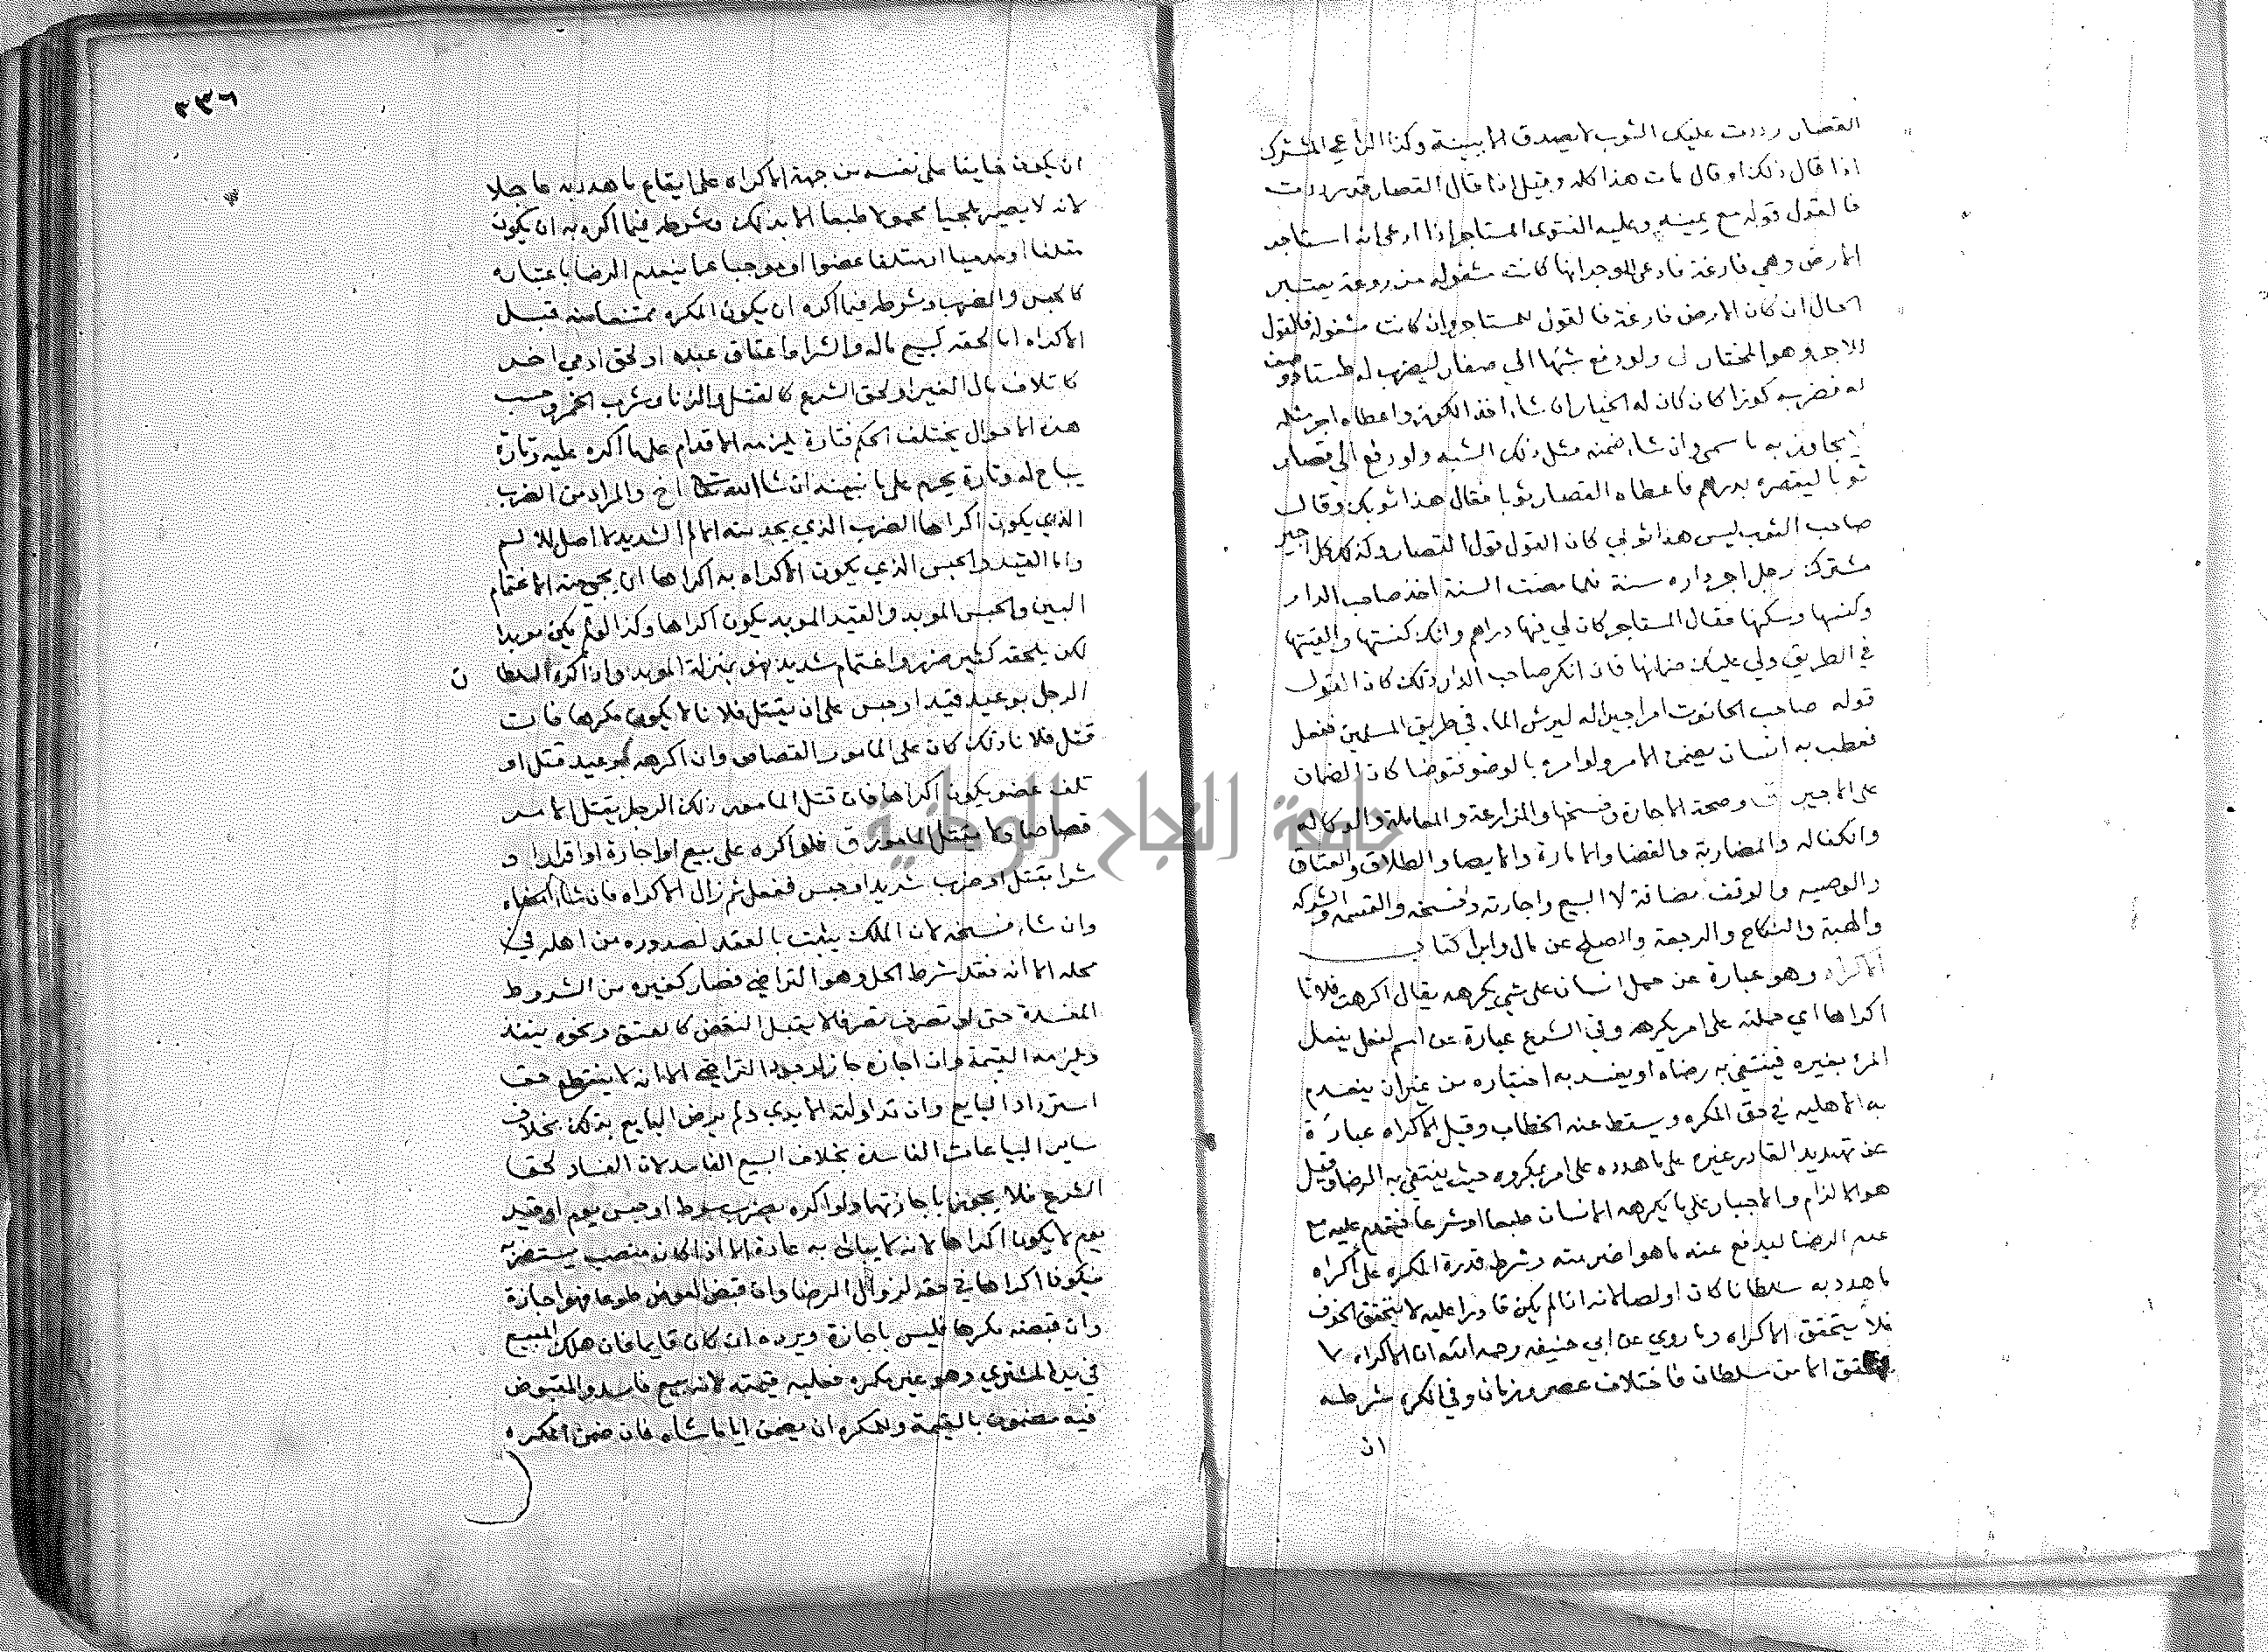 القصار رددت عليك الثوب لا يصدق الا ببينة وكذا الراعي المشترك
اذا قال ذلك او قال مات هذا كله وقيل اذا قال القصار قد رددت
فالقول قوله مع يمينه وعليه الفتوى المستاجر اذا ادعى انه استاجر
الارض وهي فارغة فادعى الموجر انها كانت مشغولة مزروعة يعتبر
الحال ان كان الارض فارغة فالقول للمستاجر وان كانت مشغولة فالقول
للاجر وهو المختار ولو دفع شبها الى صفار ليضرب له طستا وصف
له فضرب كوزا كان له الخيار ان شاء اخذ الكوز واعطاه اجر مثله
لا يجاوز به ما سمى وان شاء ضمنه مثل ذلك الشبه ولو دفع الى قصار
ثوبا ليقصره بدرهم فاعطاه القصار ثوبا فقال هذا ثوبك وقال
صاحب الثوب ليس هذا ثوبي كان القول قول القصار وكذا كل اجير
مشترك رجل اجر داره سنة فلما مضت السنة اخذ صاحب الدار
وكنسها وسكنها فقال المستاجر كان لي فيها دراهم وانك كنستها والقيتها
في الطريق ولي عليك ضمانها فان انكر صاحب الدار ذلك كان القول
قوله صاحب الحانوت امر اجيرا له ليرش الماء في طريق المسلمين ففعل
فعطب به انسان يضمن الامر ولو امره بالوضو فتوضا كان الضمان
على الاجير وصحة الاجارة وفسخها والمزارعة والمعاملة والوكاله
والكفاله والمضاربة والقضا والامارة والايصا والطلاق والعتاق
والوصيه والوقف مضافة لا البيع واجارته وفسخه والقسمه والشركه
والهبة والنكاح والرجعة والصلح عن مال وابرا كتاب
الاكراه وهو عبارة عن حمل انسان على شي يكرهه يقال اكرهت فلانا
اكراها اي حملته على امر يكرهه وفي الشرع عبارة عن اسم لفعل يفعل
المرء بغيره فينتفي به رضاه او يفسد به اختياره من غير ان ينعدم
به الاهليه في حق المكره ويسقط عنه الخطاب وقيل الاكراه عبارة
عن تهديد القادر غيره على ما هدده على امر مكروه حيث ينتفي به الرضا وقيل
هو الالزام والاجبار على ما يكرهه الانسان طبعا او شرعا فيقدم عليه مع
عدم الرضا ليدفع عنه ما هو اضر منه وشرطه قدرة المكره على اكراه
ما هدد به سلطانا كان او لصا لانه اذا لم يكن قادرا عليه لا يتحقق الخوف
فلا يتحقق الاكراه وما روي عن ابي حنيفه رحمه الله ان الاكراه لا
يتحقق الا من سلطان فاختلاف عصر وزمان وفي المكره شرطه
ان
٣٣٦
ان يكون خايفا على نفسه من جهة الاكراه على ايقاع ما هدد به عاجلا
لانه لا يصير ملجيا محمولا طبعا الا بذلك وشرطه فيما اكره به ان يكون
متلفا او مزمنا او متلفا عضوا او موجبا غما ينعدم الرضا باعتباره
كالحبس والضرب وشرطه فيما اكره ان يكون المكره ممتنعا منه قبل
الاكراه اما لحقه كبيع ماله والشرا واعتاق عبده او لحق ادمي اخر
كاتلاف مال الغير او لحق الشرع كالقتل والزنا وشرب الخمر وحسب
هذه الاحوال يختلف الحكم فتارة يلزمه الاقدام على ما اكره عليه وتارة
يباح له وتارة يحرم على ما نبينه ان شا الله تعالى والمراد من الضرب
الذي يكون اكراها الضرب الذي يجد منه الالم الشديد
واما القيد والحبس الذي يكون الاكراه به اكراها ان يجي منه الاغتمام
البين والحبس الموبد والقيد الموبد يكون اكراها وكذا لو لم يكن موبدا
لكن يلحقه كثير ضرر واغتمام شديد فهو بمنزلة الموبد واذا اكره السلطان
الرجل بوعيد قيد او حبس على ان يقتل فلانا لا يكون مكرها فان
قتل فلانا ذلك كان على المامور القصاص وان اكرهه بوعيد قتل او
تلف عضو يكون اكراها فان قتل المامور ذلك الرجل يقتل الامر
قصاصا ولا يقتل المامور ق فلو اكره على بيع او اجارة او اقرار او
شرا بقتل او ضرب شديد او حبس ففعل ثم زال الاكراه فان شاء امضاه
وان شاء فسخه لان الملك يثبت بالعقد لصدوره من اهله في
محله الا انه فقد شرط الحل وهو التراضي فصار كغيره من الشروط
المفسدة حتى لو تصرف تصرفا لا يقبل النقض كالعتق ونحوه ينفذ
ويلزمه القيمة وان اجازه جاز لوجود التراضي الا انه لا ينقطع حق
استرداد البايع وان تداولته الايدي ولم يرض البايع بذلك بخلاف
ساير البياعات الفاسدة بخلاف البيع الفاسد لان الفساد لحق
الشرع فلا يجوز باجازتهما ولو اكره بضرب سوط او حبس يوم او قيد
يوم لا يكون اكراها لانه لا يبالى به عادة الا اذا كان منصب يستضر به
فيكون اكراها في حقه لزوال الرضا وان قبض العوض طوعا فهو اجازة
وان قبضه مكرها فليس باجازة ويرده ان كان قايما فان هلك المبيع
في يد المشتري وهو غير مكره فعليه قيمته لانه بيع فاسد والمقبوض
فيه مضمون بالقيمة وللمكره ان يضمن ايا ما شاء فان ضمن المكره
جامعة النجاح الوطنية